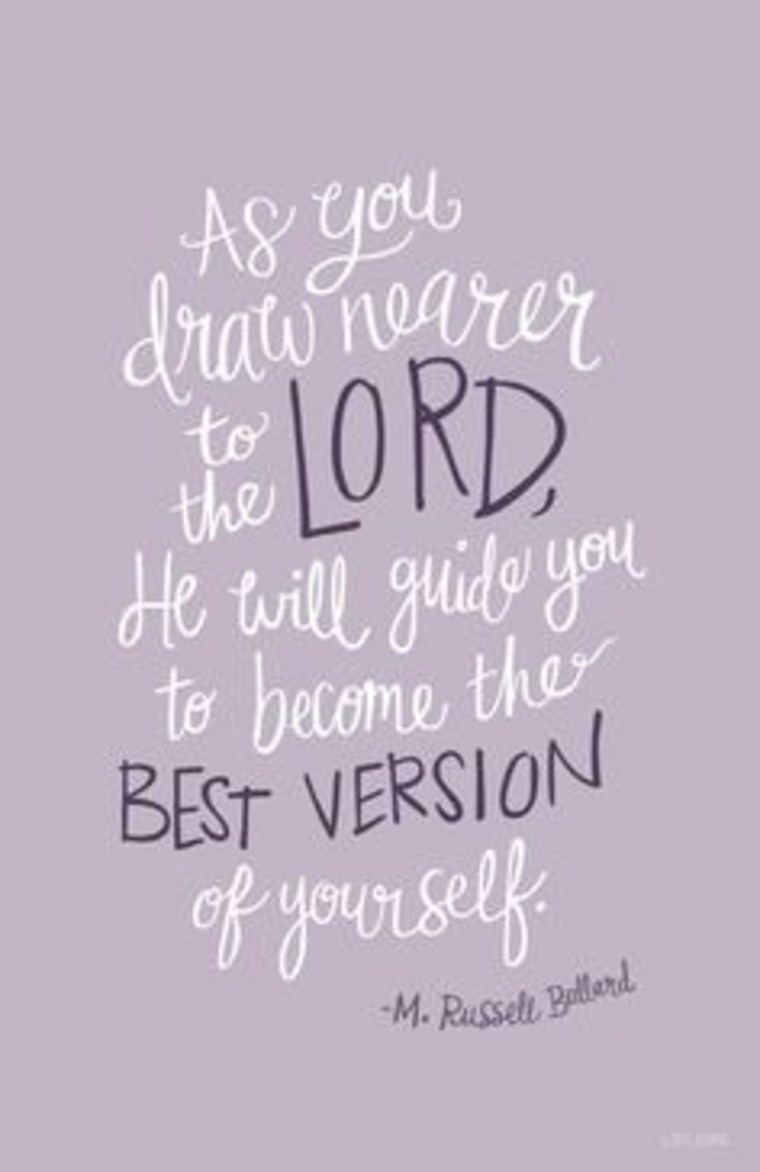 As you
draw nearer
to
the LORD,
He will guide you
to become the
BEST VERSION
of yourself.
-M. Russell Ballard